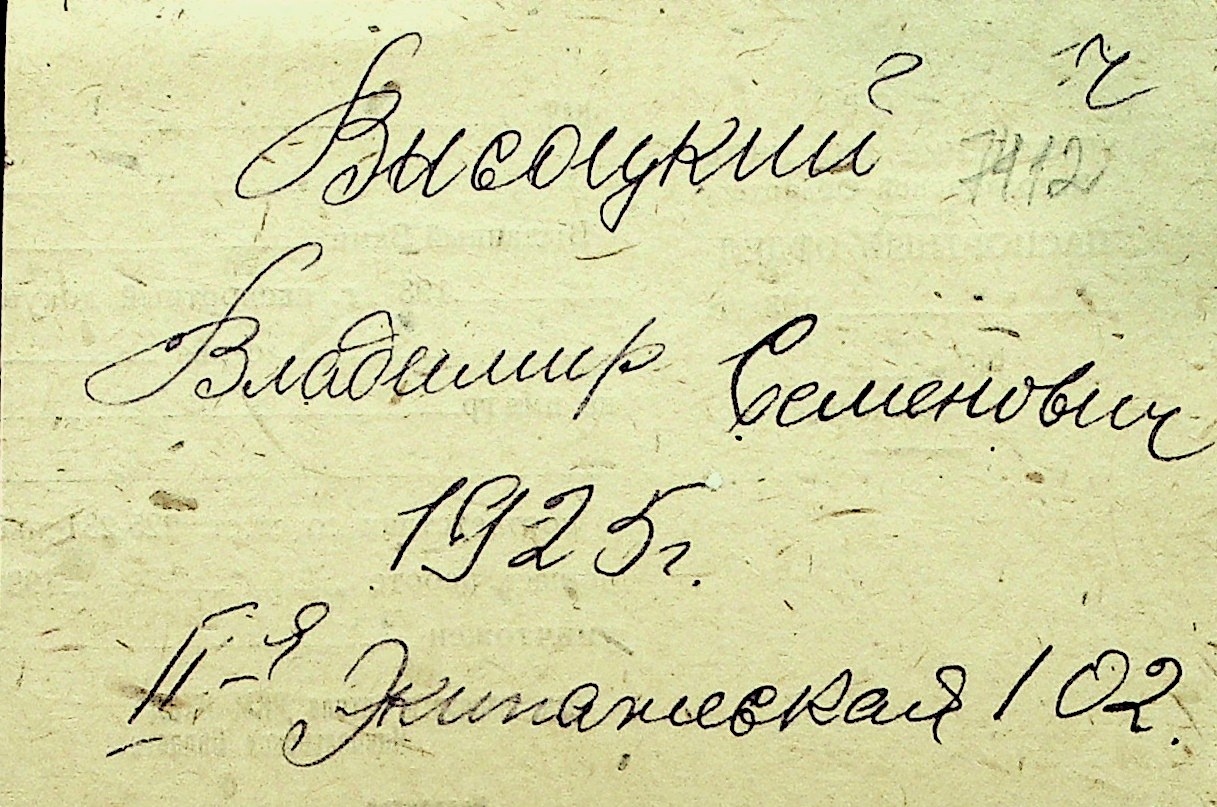 Высоцкий
7412
Владимир Семенович
1925г.
II-я Экипажеская 102.